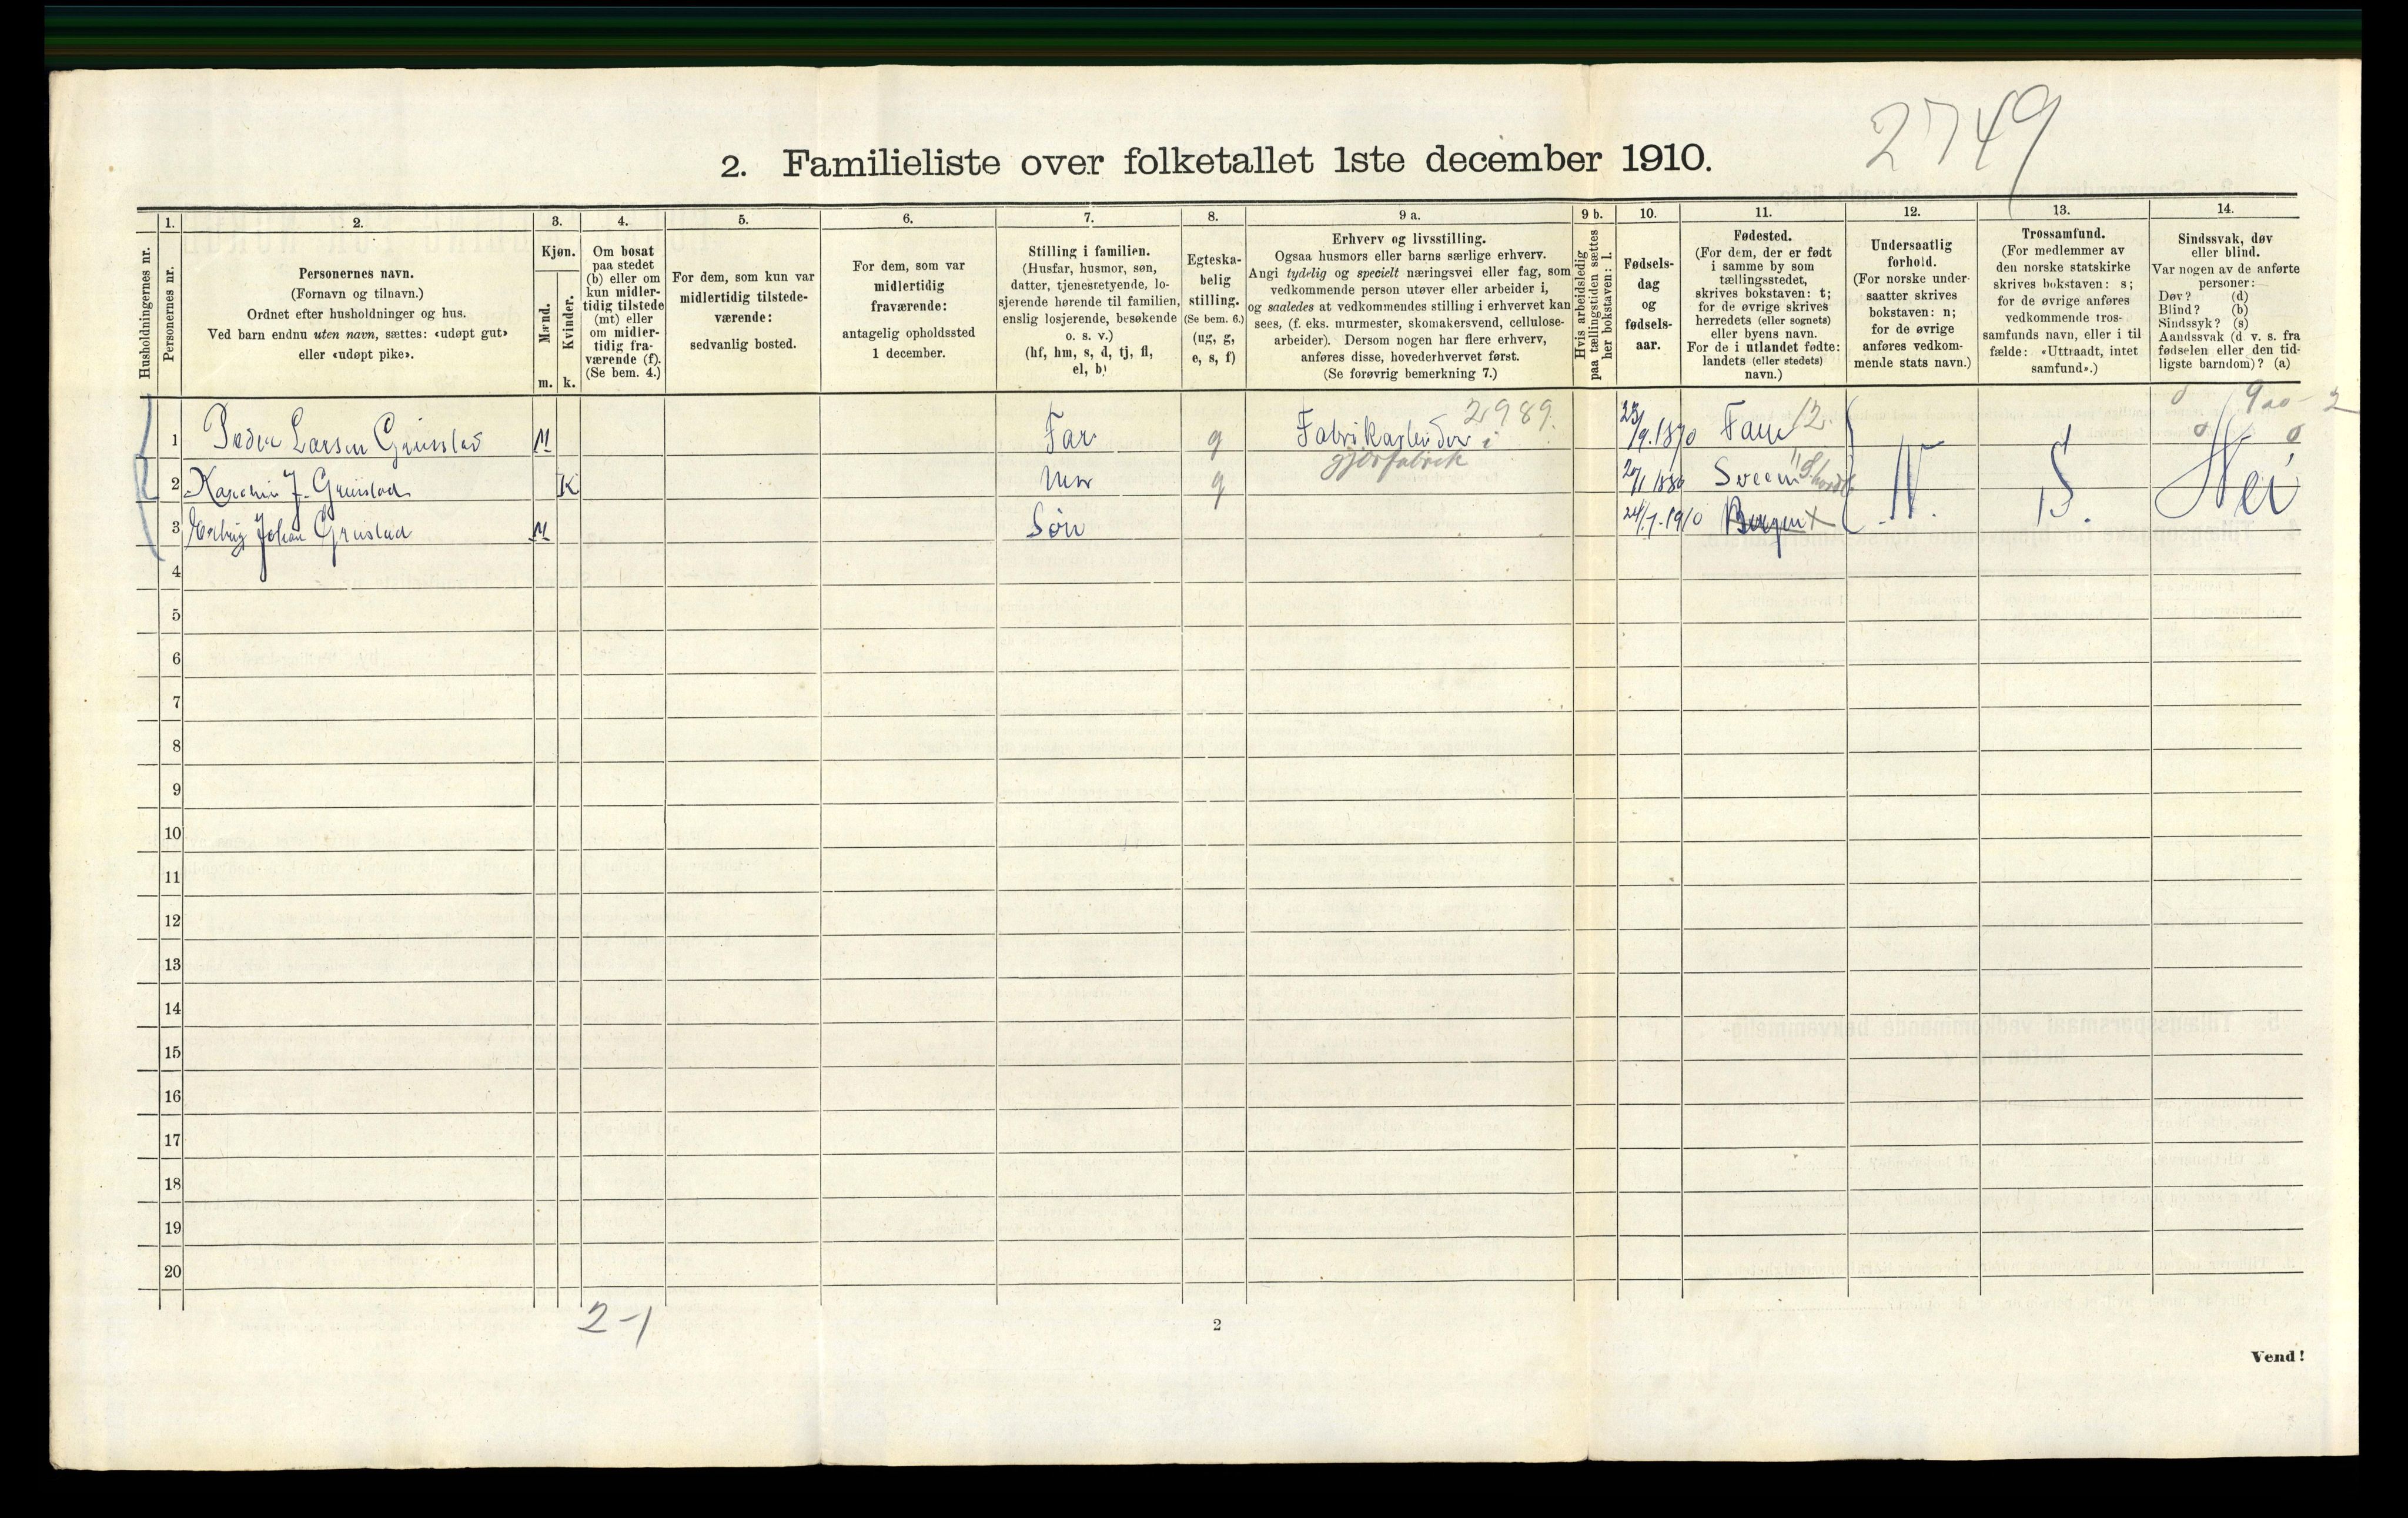 2749
2. Familieliste over folketallet 1ste december 1910.
Husholdningernes nr.
1.
Personernes nr.
2.
Personernes navn.
(Fornavn og tilnavn.)
Ordnet efter husholdninger og hus.
Ved barn endnu uten navn, sættes: «udøpt gut»
eller «udøpt pike».
3.
Kjøn.
Mænd.
Kvinder.
m. k.
4.
Om bosat
paa stedet
(b) eller om
kun midler-
tidig tilstede
(mt) eller
om midler-
tidig fra-
værende (f).
(Se bem. 4.)
5.
For dem, som kun var
midlertidig tilstede-
værende:
sedvanlig bosted.
6.
For dem, som var
midlertidig
fraværende:
antagelig opholdssted
1 december.
7.
Stilling i familien.
(Husfar, husmor, søn,
datter, tjenestetyende, lo-
sjerende hørende til familien,
enslig losjerende, besøkende
o. s. v.)
(hf, hm, s, d, tj, fl,
el, b)
8.
Egteska-
belig
stilling.
(Se bem. 6.)
(ug, g,
e, s, f)
9 a.
Erhverv og livsstilling.
Ogsaa husmors eller barns særlige erhverv.
Angi tydelig og specielt næringsvei eller fag, som
vedkommende person utøver eller arbeider i,
og saaledes at vedkommendes stilling i erhvervet kan
sees, (f. eks. murmester, skomakersvend, cellulose-
arbeider). Dersom nogen har flere erhverv,
anføres disse, hovederhvervet først.
(Se forøvrig bemerkning 7.)
9 b.
Hvis arbeidsledig
paa tællingstiden sættes
her bokstaven: l.
10.
Fødsels-
dag
og
fødsels-
aar.
11.
Fødested.
(For dem, der er født
i samme by som
tællingsstedet,
skrives bokstaven: t;
for de øvrige skrives
herredets (eller sognets)
eller byens navn.
For de i utlandet fødte:
landets (eller stedets)
navn.)
12.
Undersaatlig
forhold.
(For norske under-
saatter skrives
bokstaven: n;
for de øvrige
anføres vedkom-
mende stats navn.)
13.
Trossamfund.
(For medlemmer av
den norske statskirke
skrives bokstaven: s;
for de øvrige anføres
vedkommende tros-
samfunds navn, eller i til
fælde: «Uttraadt, intet
samfund».)
14.
Sindssvak, døv
eller blind.
Var nogen av de anførte
personer:
Døv? (d)
Blind? (b)
Sindssyk? (s)
Aandssvak (d v. s. fra
fødselen eller den tid-
ligste barndom)? (a)
2989.
1 Peder Larsen Grimstad M Far g Fabrikarbeider i /9.1870 Fane 12
gjærfabrik
2 J. Grimstad K Mor g 1880 N. S. Nei
3 Johan Grimstad M Søn 24/1-1910 Bergen X
4
5
6
7
8
9
10
11
12
13
14
15
16
17
18
19
20
2-1
2
Vend!